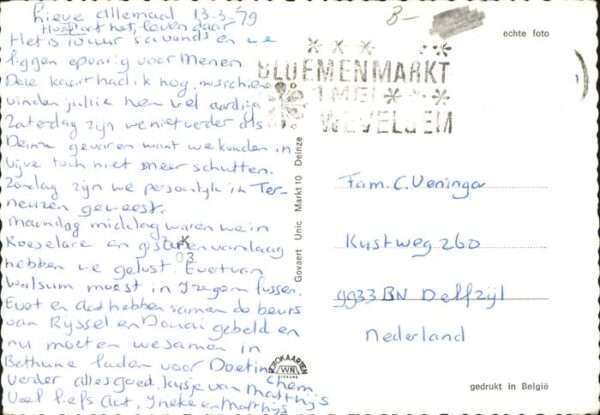 Lieve allemaal 13-3-79
Hoe is het leven daar
Het is 10 uur 's avonds en we
liggen epvarig voor Menen
Deze kaart had ik nog, misschien
vinden jullie hem wel aardig
Zaterdag zijn we niet verder als
Deinze gevaren want we konden in
Vijve toch niet meer schutten.
Zondag zijn we persoonlijk in Ter-
neuzen geweest.
Maandag middag waren we in
Roeselare en gisteren vandaag
hebben we gelost. Evert van
Walsum moest in Izegem lossen.
Evert en Aat hebben samen de beurs
van Ryssel en Douai gebeld en
nu moeten we samen in
Bethune laden voor Doetinchem
Verder alles goed, kusje van Matthijs
Veel liefs Aat, Ineke en Matthijs
K
03
Govaert Unic Markt 10 Deinze
FOTOKAARTEN
8-
echte foto
BLOEMENMARKT
1 MEI
WEVELGEM
Fam. C. Veninga
Kustweg 260
9933 BN Delfzijl
Nederland
gedrukt in België